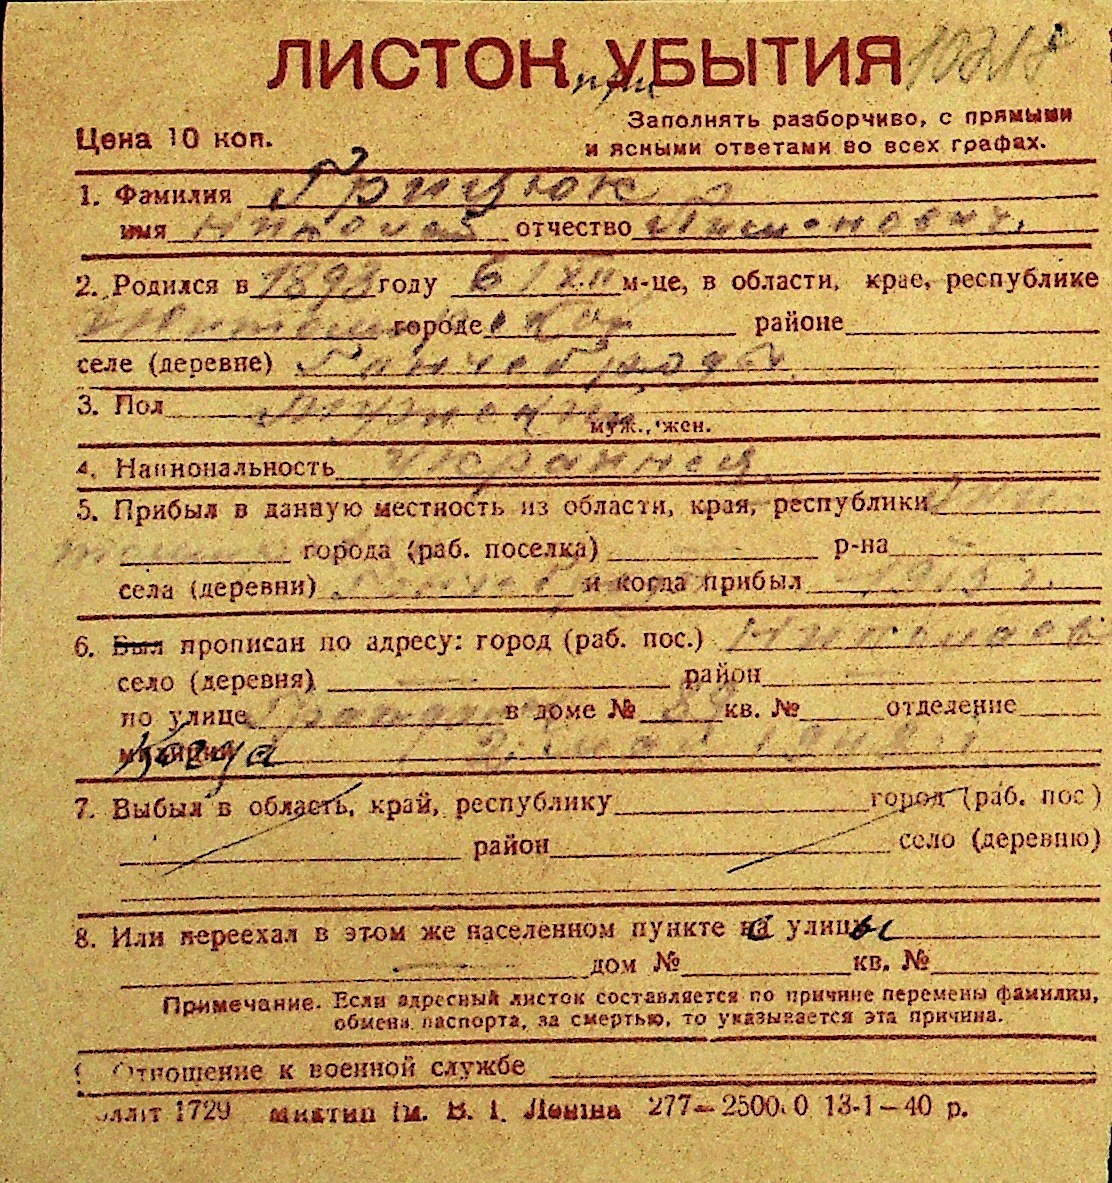 ЛИСТОК УБЫТИЯ
при
Цена 10 коп.
Заполнять разборчиво, с прямыми
и ясными ответами во всех графах.
1. Фамилия Грицюк
имя Николай отчество
2. Родился в 1893 году 6/XII м-це, в области, крае, республике
городе районе
селе (деревне)
3. Пол Мужской
муж., жен.
4. Национальность Украинец
5. Прибыл в данную местность из области, края, республики Жи
томир города (раб. поселка) — р-на —
села (деревни) и когда прибыл 1915 г.
6. Был прописан по адресу: город (раб. пос.) Николаев
село (деревня) — район —
по улице в доме № 89 кв. № отделение
милиции Когда 2. мая
7. Выбыл в область, край, республику город (раб. пос)
район село (деревню)
8. Или переехал в этом же населенном пункте с улицы
— дом № кв. №
Примечание. Если адресный листок составляется по причине перемены фамилии,
обмена паспорта, за смертью, то указывается эта причина.
Отношение к военной службе
1729 им. В. І. Леніна 277—2500.0 13-1—40 р.